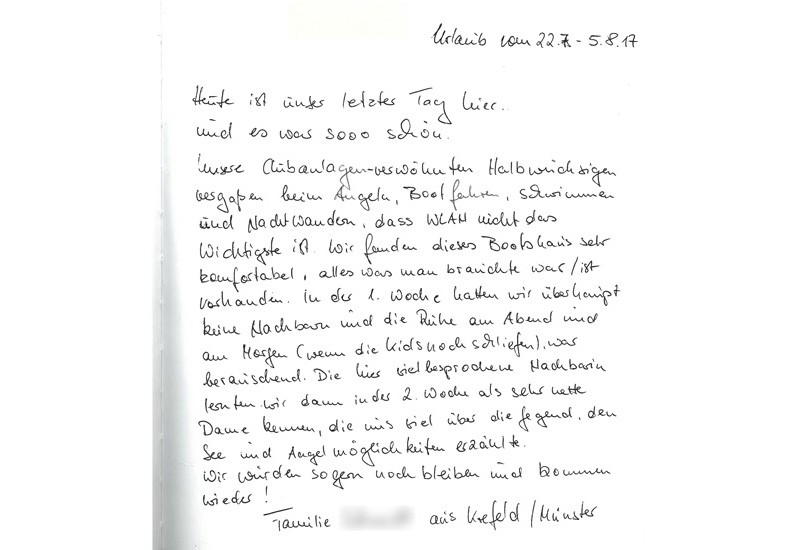 Urlaub vom 22.7. - 5.8.17
Heute ist unser letzter Tag hier..
und es war sooo schön.
Unsere Clubanlagen-verwöhnten Halbwüchsigen
vergaßen beim Angeln, Bootfahren, schwimmen
und Nachtwandern, dass WLAN nicht das
Wichtigste ist. Wir fanden dieses Bootshaus sehr
komfortabel, alles was man brauchte war/ist
vorhanden. In der 1. Woche hatten wir überhaupt
keine Nachbarn und die Ruhe am Abend und
am Morgen (wenn die Kids noch schliefen), war
berauschend. Die hier vielbesprochene Nachbarin
lernten wir dann in der 2. Woche als sehr nette
Dame kennen, die uns viel über die Gegend, den
See und Angelmöglichkeiten erzählte.
Wir würden so gern noch bleiben und kommen
wieder!
Familie aus Krefeld/Münster